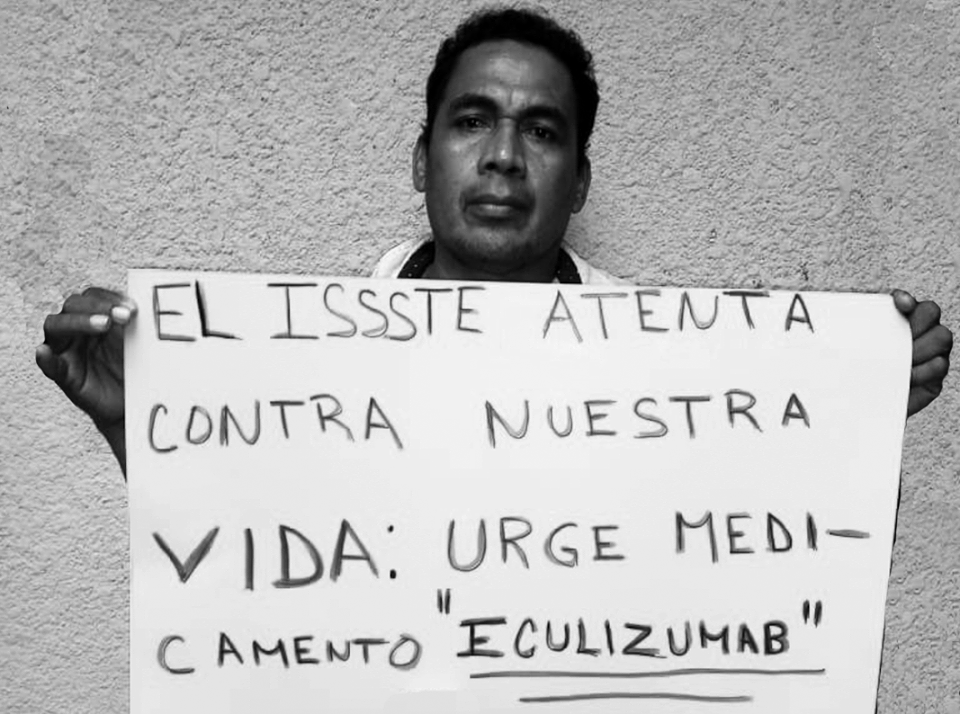 EL ISSSTE ATENTA
CONTRA NUESTRA
VIDA: URGE MEDI-
CAMENTO "ECULIZUMAB"